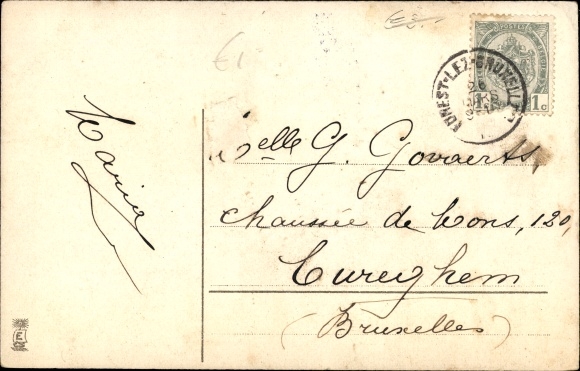 Maria
€1
Melle G. Govaerts
Chaussée de Mons, 120,
Cureghem
(Bruxelles)
FOREST-LEZ-BRUXELLES
POSTES
1c
E